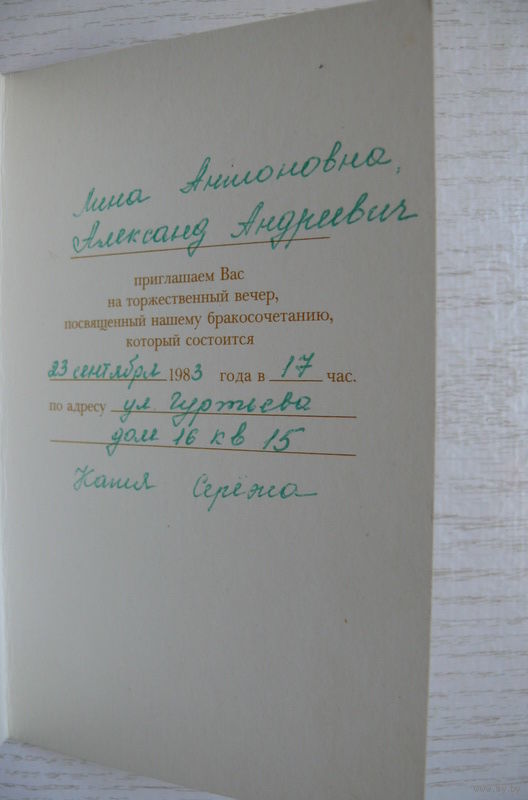 Лина Антоновна,
Александ Андреевич
приглашаем Вас
на торжественный вечер,
посвященный нашему бракосочетанию,
который состоится
23 сентября 1983 года в 17 час.
по адресу ул. Гуртьева
дом 16 кв 15
Катя Серёжа